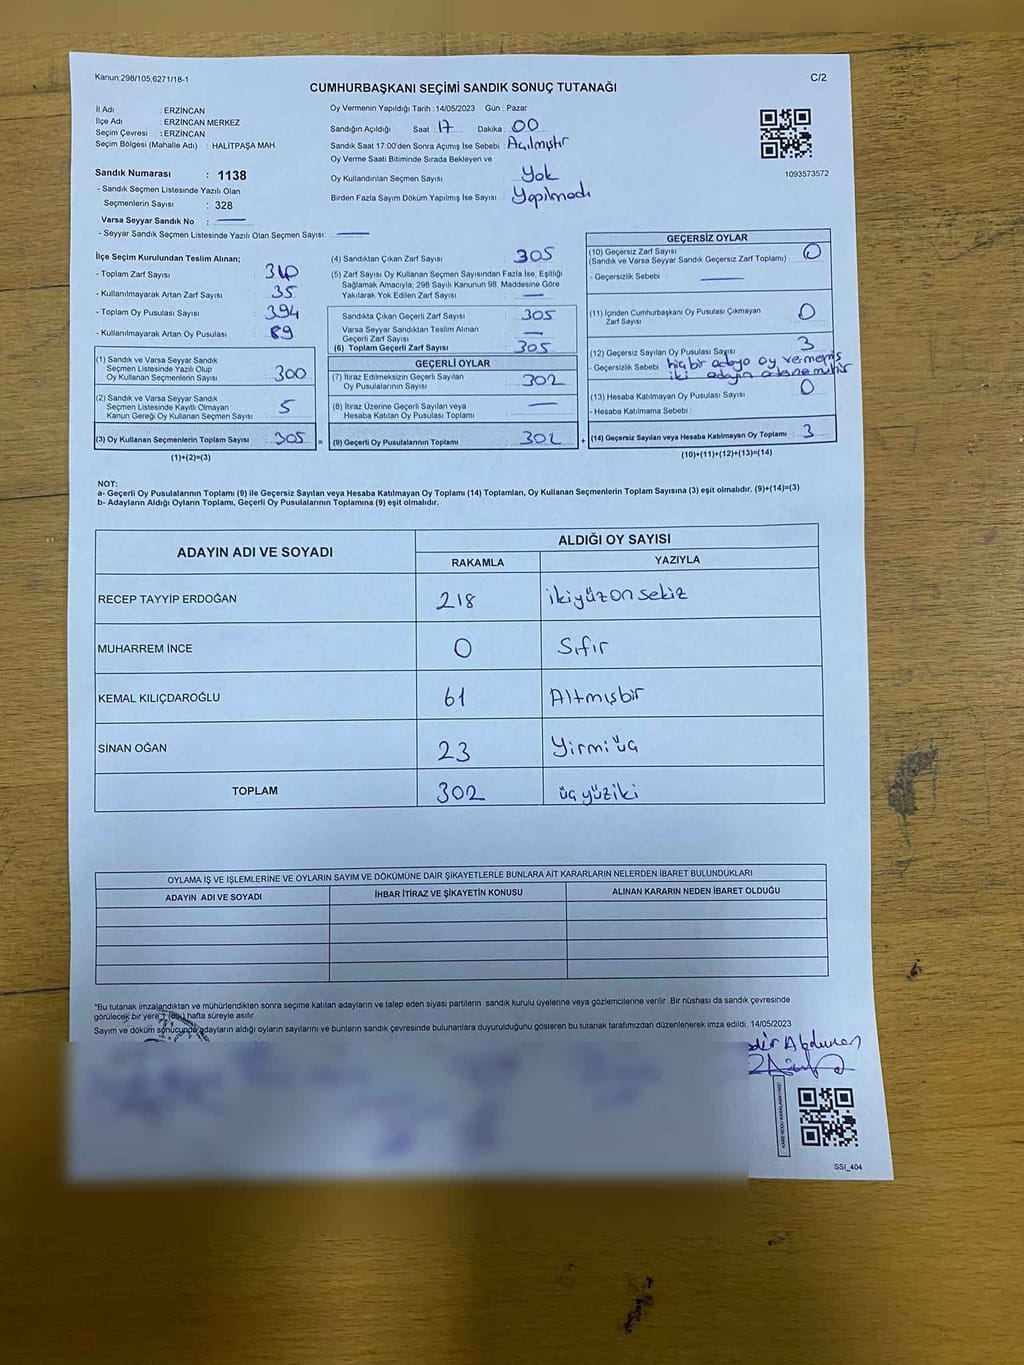 Kanun:298/105,6271/18-1
C/2
CUMHURBAŞKANI SEÇİMİ SANDIK SONUÇ TUTANAĞI
İl Adı : ERZİNCAN
İlçe Adı : ERZİNCAN MERKEZ
Seçim Çevresi : ERZİNCAN
Seçim Bölgesi (Mahalle Adı) : HALİTPAŞA MAH.
Sandık Numarası : 1138
- Sandık Seçmen Listesinde Yazılı Olan
Seçmenlerin Sayısı : 328
Varsa Seyyar Sandık No :
- Seyyar Sandık Seçmen Listesinde Yazılı Olan Seçmen Sayısı:
Oy Vermenin Yapıldığı Tarih : 14/05/2023 Gün : Pazar
Sandığın Açıldığı Saat : 17 Dakika : 00
Sandık Saat 17:00'den Sonra Açımış İse Sebebi : Açılmıştır
Oy Verme Saati Bitiminde Sırada Bekleyen ve
Oy Kullandırılan Seçmen Sayısı : Yok
Birden Fazla Sayım Döküm Yapılmış İse Sayısı : Yapılmadı
1093573572
İlçe Seçim Kurulundan Teslim Alınan;
- Toplam Zarf Sayısı : 340
- Kullanılmayarak Artan Zarf Sayısı : 35
- Toplam Oy Pusulası Sayısı : 394
- Kullanılmayarak Artan Oy Pusulası : 89
(1) Sandık ve Varsa Seyyar Sandık
Seçmen Listesinde Yazılı Olup
Oy Kullanan Seçmenlerin Sayısı : 300
(2) Sandık ve Varsa Seyyar Sandık
Seçmen Listesinde Kayıtlı Olmayan
Kanun Gereği Oy Kullanan Seçmen Sayısı : 5
(3) Oy Kullanan Seçmenlerin Toplam Sayısı : 305 =
(1)+(2)=(3)
(4) Sandıktan Çıkan Zarf Sayısı : 305
(5) Zarf Sayısı Oy Kullanan Seçmen Sayısından Fazla İse, Eşitliği
Sağlamak Amacıyla; 298 Sayılı Kanunun 98. Maddesine Göre
Yakılarak Yok Edilen Zarf Sayısı :
Sandıkta Çıkan Geçerli Zarf Sayısı : 305
Varsa Seyyar Sandıktan Teslim Alınan
Geçerli Zarf Sayısı :
(6) Toplam Geçerli Zarf Sayısı : 305
GEÇERLİ OYLAR
(7) İtiraz Edilmeksizin Geçerli Sayılan
Oy Pusulalarının Sayısı : 302
(8) İtiraz Üzerine Geçerli Sayılan veya
Hesaba Katılan Oy Pusulası Toplamı :
(9) Geçerli Oy Pusulalarının Toplamı : 302 +
GEÇERSİZ OYLAR
(10) Geçersiz Zarf Sayısı
(Sandık ve Varsa Seyyar Sandık Geçersiz Zarf Toplamı) : 0
- Geçersizlik Sebebi :
(11) İçinden Cumhurbaşkanı Oy Pusulası Çıkmayan
Zarf Sayısı : 0
(12) Geçersiz Sayılan Oy Pusulası Sayısı : 3
- Geçersizlik Sebebi : hiçbir adaya oy vermemiş
iki adayın
(13) Hesaba Katılmayan Oy Pusulası Sayısı : 0
- Hesaba Katılmama Sebebi :
(14) Geçersiz Sayılan veya Hesaba Katılmayan Oy Toplamı : 3
(10)+(11)+(12)+(13)=(14)
NOT:
a- Geçerli Oy Pusulalarının Toplamı (9) ile Geçersiz Sayılan veya Hesaba Katılmayan Oy Toplamı (14) Toplamları, Oy Kullanan Seçmenlerin Toplam Sayısına (3) eşit olmalıdır. (9)+(14)=(3)
b- Adayların Aldığı Oyların Toplamı, Geçerli Oy Pusulalarının Toplamına (9) eşit olmalıdır.
ADAYIN ADI VE SOYADI ALDIĞI OY SAYISI
RAKAMLA YAZIYLA
RECEP TAYYİP ERDOĞAN 218 ikiyüzonsekiz
MUHARREM İNCE 0 Sıfır
KEMAL KILIÇDAROĞLU 61 Altmışbir
SİNAN OĞAN 23 Yirmiüç
TOPLAM 302 üçyüziki
OYLAMA İŞ VE İŞLEMLERİNE VE OYLARIN SAYIM VE DÖKÜMÜNE DAİR ŞİKAYETLERLE BUNLARA AİT KARARLARIN NELERDEN İBARET BULUNDUKLARI
ADAYIN ADI VE SOYADI İHBAR İTİRAZ VE ŞİKAYETİN KONUSU ALINAN KARARIN NEDEN İBARET OLDUĞU
*Bu tutanak imzalandıktan ve mühürlendikten sonra seçime katılan adayların ve talep eden siyasi partilerin sandık kurulu üyelerine veya gözlemcilerine verilir. Bir nüshası da sandık çevresinde
görülecek bir yere 1 (bir) hafta süreyle asılır.
Sayım ve döküm sonucunda adayların aldığı oyların sayılarını ve bunların sandık çevresinde bulunanlara duyurulduğunu gösteren bu tutanak tarafımızdan düzenlenerek imza edildi. 14/05/2023
KARE KODU KARALAMAYINIZ!
SSİ_404